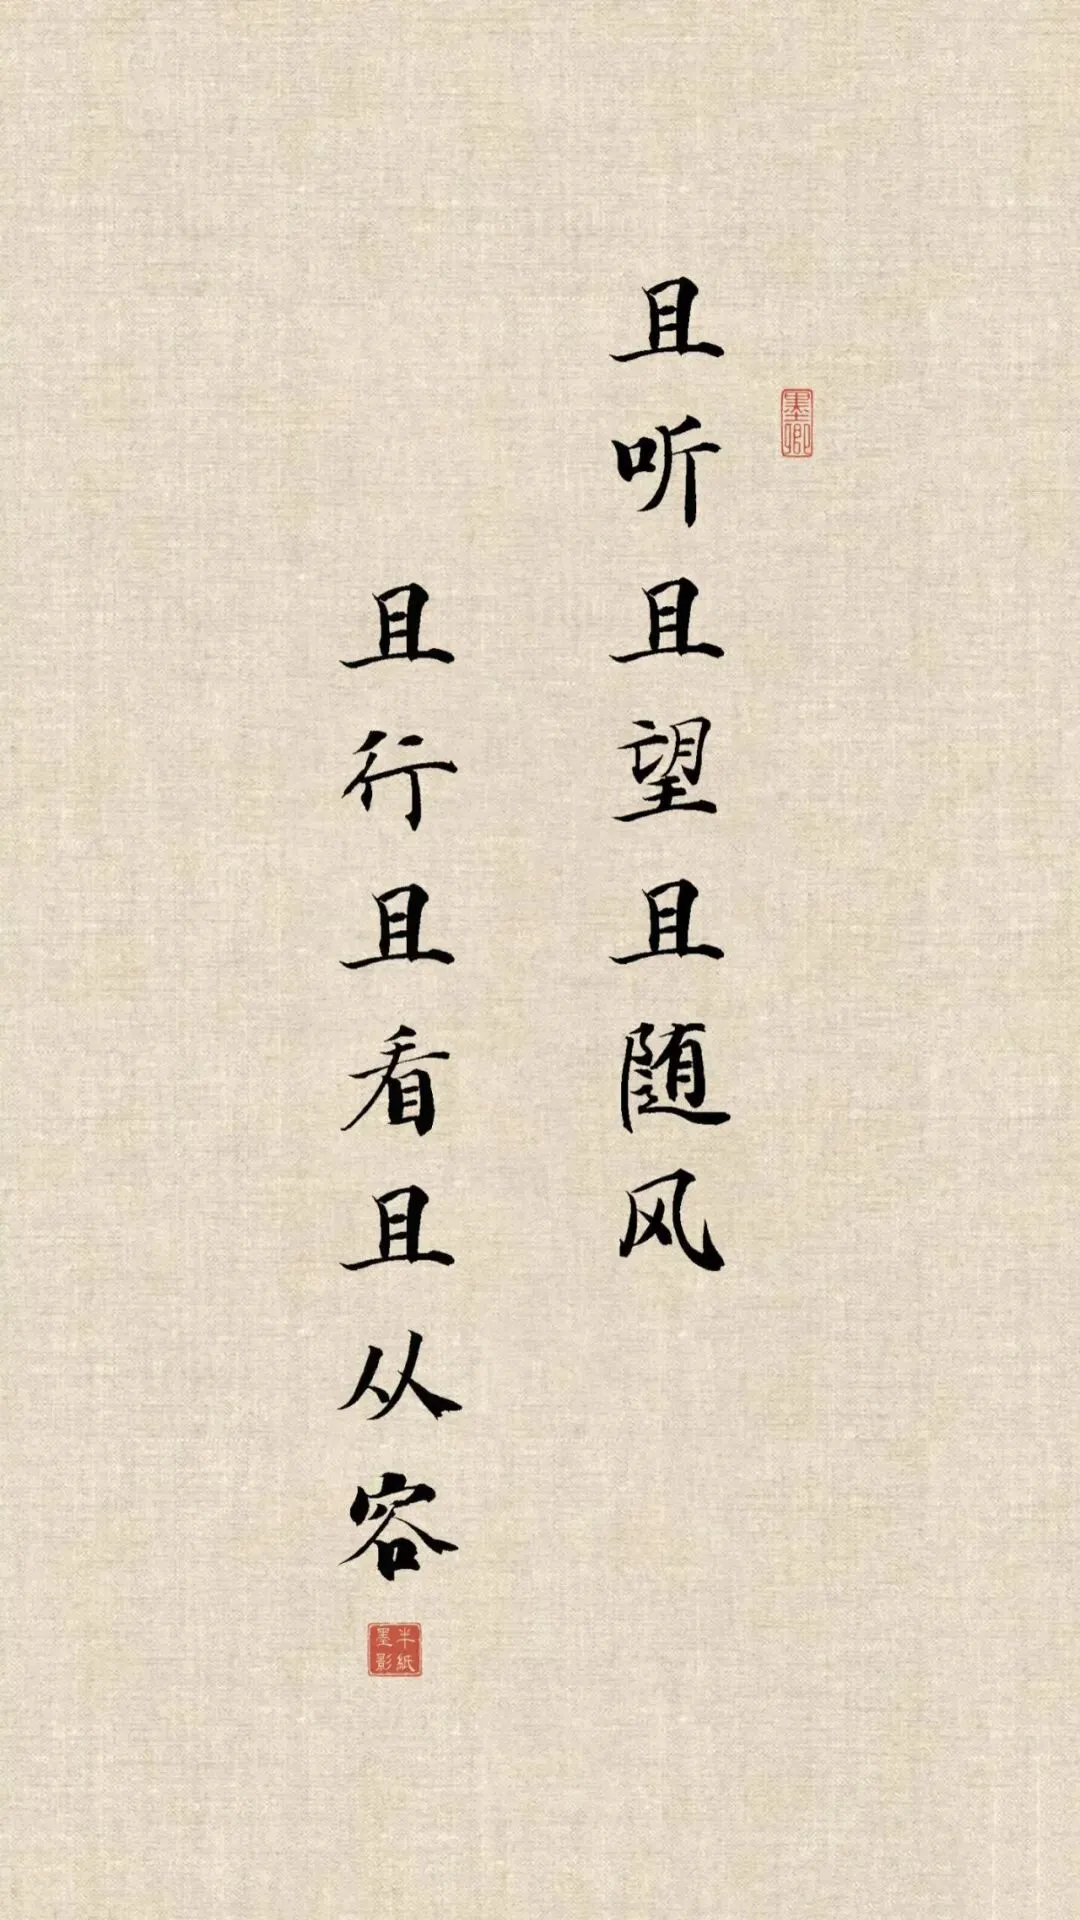 且听且望且随风
墨卿
且行且看且从容
半紙墨影